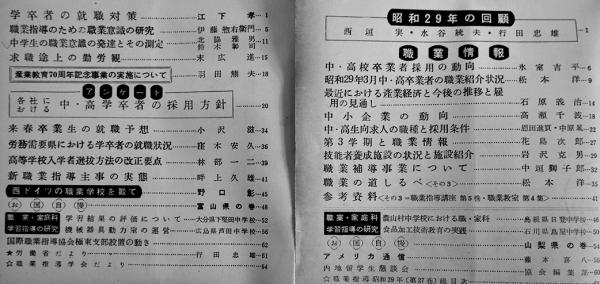 学卒者の就職対策 江下孝 1
職業指導のための職業意識の研究 伊藤惣右衛門 5
中学生の職業意識の発達とその測定 北脇雅男 鈴木聊司 11
求職途上の勤労観 末広進 15
産業教育70周年記念事業の実施について 羽田熊夫 18
アンケート
各社における 中・高学卒者の採用方針 20
来春卒業生の就職予想 小沢滋 34
労務需要県における学卒者の就職状況 窪木安久 36
高等学校入学者選抜方法の改正要点 林部一二 39
新職業指導主事の実態 畔上久雄 41
西ドイツの職業学校を観て 野口彰 45
お国自慢 富山県の巻 48
職業・家庭科 学習指導の研究
学習結果の評価について 大分県下堅田中学校 52
機械器具動力室の運営 広島県戸田中学校 56
国際職業指導協会極東支部設置の動き 62
★労働省だより 行田忠雄 61
☆職業指導学会だより 64
昭和29年の回顧
西垣実・水谷統夫・行田忠雄 1
職業情報
中・高校卒業者採用の動向 氷室吉平 6
昭和29年3月中・高卒業者の職業紹介状況 松本洋 9
最近における産業経済と今後の推移と雇用の見通し 石原義治 14
中小企業の動向 高瀬千波 18
中・高生向求人の職種と採用条件 恩田進寅・中原晃 22
第3学期と職業情報 花島次郎 27
技能者養成施設の状況と施設紹介 岩沢克男 29
職業補導事業について 中垣獅子郎 32
職業の道しるべ<その3> 松本洋 35
参考資料<その3=職業指導講座 第5巻・職業教室 第4集> 41
職業・家庭科 学習指導の研究
農山村中学校における職・家科 島根県日登中学校 46
食品加工技術教育の実践 石川県島屋中学校 50
お国自慢 山梨県の巻 54
アメリカ通信 藤本喜八 56
内地留学生懇談会 協会編集部 60
☆職業指導昭和29年(第27巻)総目次